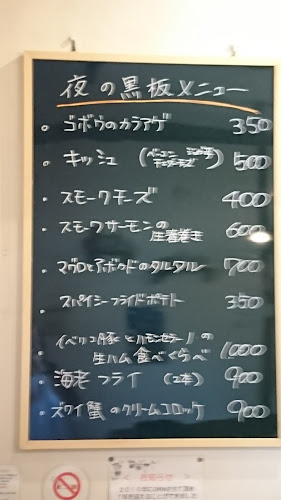 夜の黒板メニュー
ゴボウのカラアゲ 350
キッシュ (ベーコン チェダーチーズ) 500
スモークチーズ 400
スモークサーモンの
生春巻き 600
マグロとアボカドのタルタル 700
スパイシーフライドポテト 350
イベリコ豚とハモンセラーノの
生ハム食べくらべ 1000
海老フライ (2本) 900
ズワイ蟹のクリームコロッケ 900
お知らせ